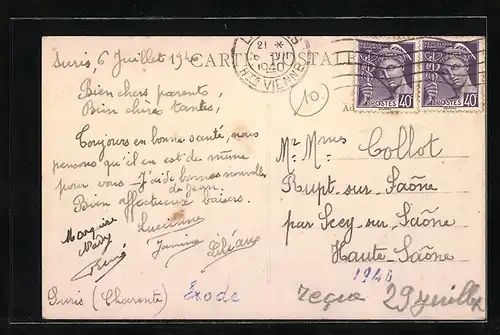 Suris 6 Juillet 1940
CARTE POSTALE
21 *
1940
HTE VIENNE
POSTES 40
POSTES 40
10
Bien chers parents,
Bien chère tantes,
Toujours en bonne santé, nous
pensons qu'il en est de même
pour vous - J'ai de bonnes nouvelles
de Jean.
Bien affectueux baisers.
Lucienne
Jeannine
Marquise
Mady
René
Suris (Charente)
Exode
Mr Mmes Collot
Rupt-sur-Saône
par Scey-sur-Saône
Haute-Saône
1940
reçue 29 juillet